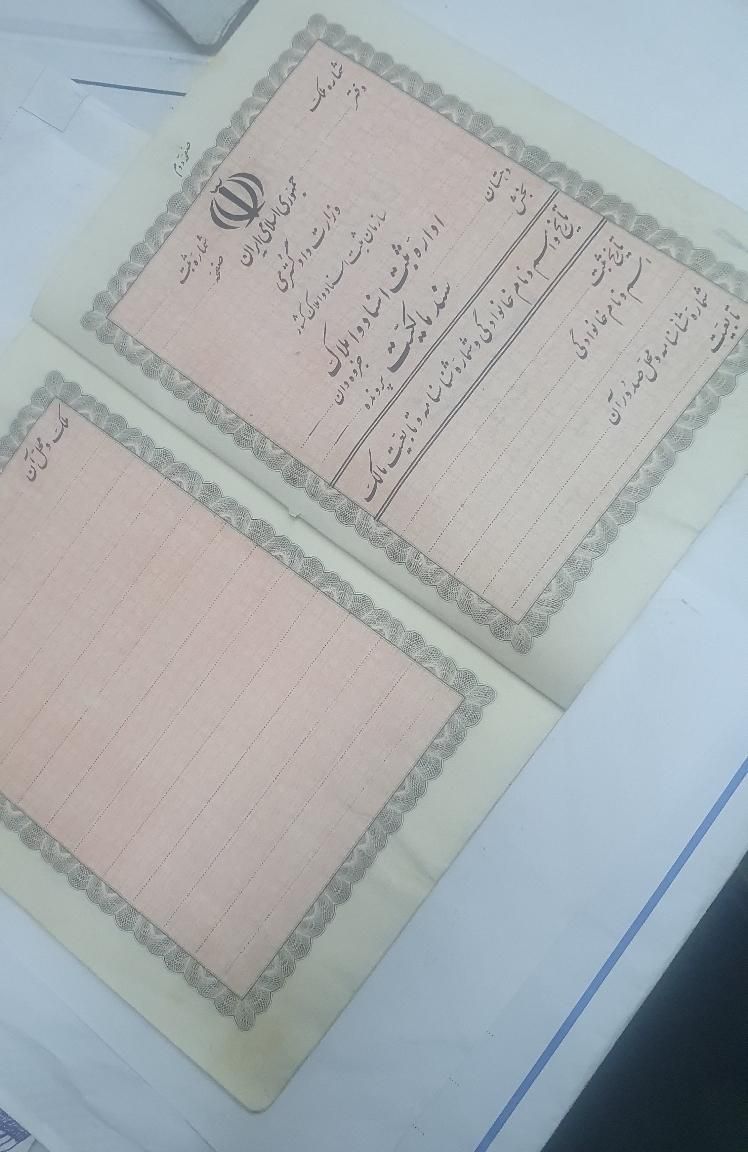 صفحه دوم
شماره ملک
دفتر
شماره ثبت
صفحه
جمهوری اسلامی ایران
وزارت دادگستری
سازمان ثبت اسناد و املاک کشور
اداره ثبت اسناد و املاک
سند مالکیت
دهستان
بخش
جزوه دان
پرونده
تاریخ و اسم و نام خانوادگی و شماره شناسنامه و تابعیت مالک
تاریخ ثبت
اسم و نام خانوادگی
شماره شناسنامه و محل صدور آن
تابعیت
ملک و محل آن